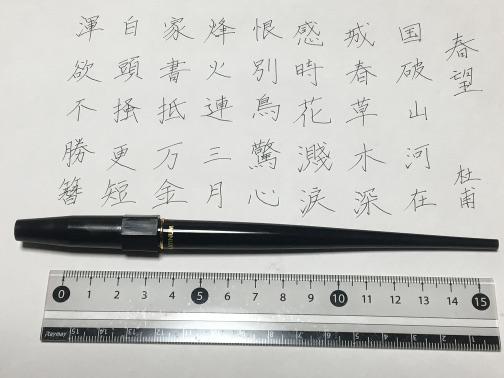 春望
杜甫
国破山河在
城春草木深
感時花濺淚
恨別鳥驚心
烽火連三月
家書抵万金
白頭搔更短
渾欲不勝簪
PLATINUM
0 1 2 3 4 5 6 7 8 9 10 11 12 13 14 15
Raymay